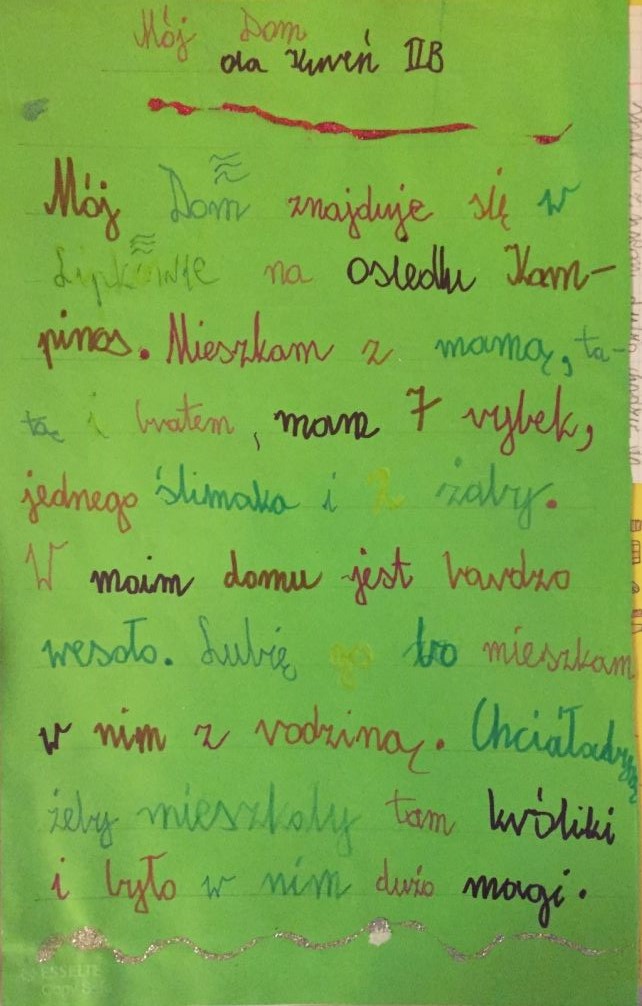 Mój Dom
Ola Kureń IIB
Mój Dom znajduje się w
Lipkowie na osiedlu Kam-
pinos. Mieszkam z mamą, ta-
tą i bratem, mam 7 rybek,
jednego ślimaka i 2 żaby.
W moim domu jest bardzo
wesoło. Lubię go bo mieszkam
w nim z rodziną. Chciałabym
żeby mieszkały tam króliki
i było w nim dużo magi.
ESSELTE
Copy Safe